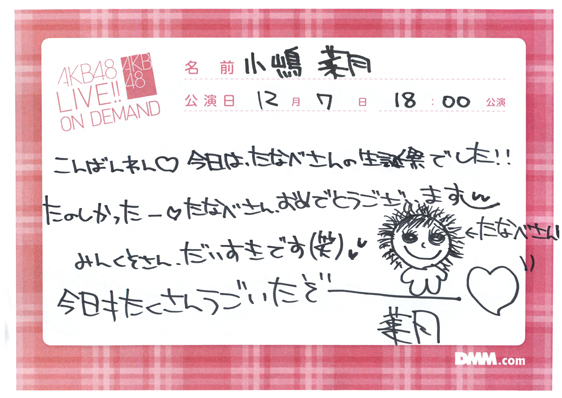 AKB48
LIVE!!
ON DEMAND
AKB
48
名前 小嶋 菜月
公演日 12月7日 18:00 公演
こんばんわん♡ 今日は、たなべさんの生誕祭でした!!
たのしかったー♡たなべさん、おめでとうございます
←たなべさん
みんくそさん、だいすきです(笑)
今日もたくさんうごいたぞー
菜月
DMM.com